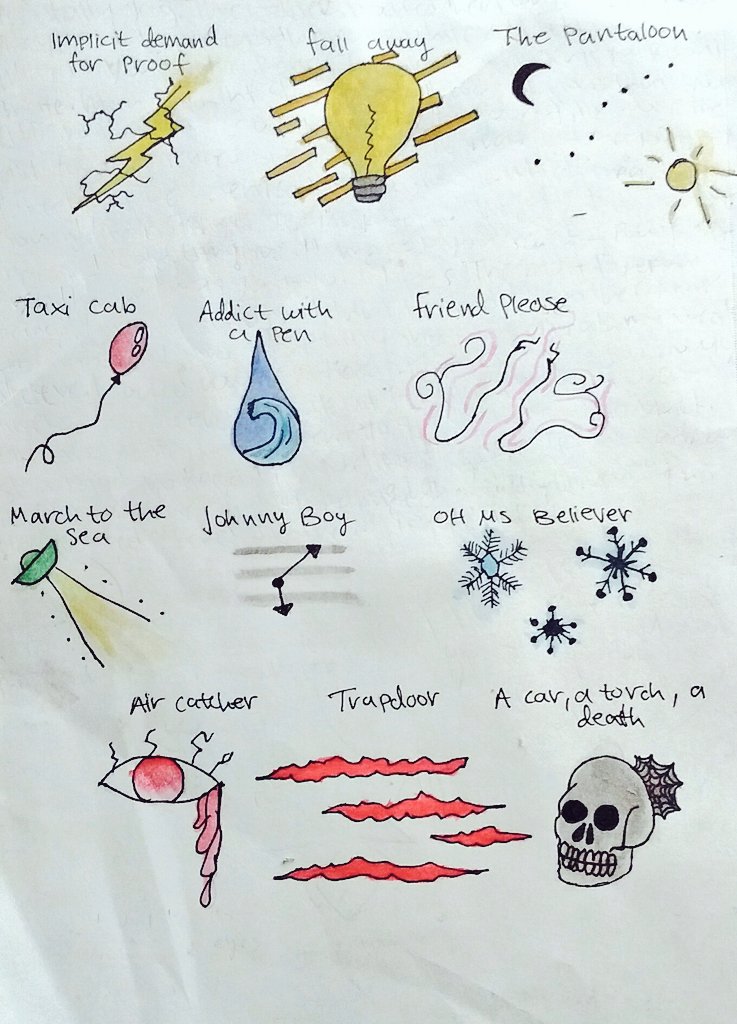 Implicit demand
for Proof
fall away
The Pantaloon
Taxi cab
Addict with
a Pen
friend please
March to the
Sea
Johnny Boy
OH MS Believer
Air catcher
Trapdoor
A car, a torch, a
death